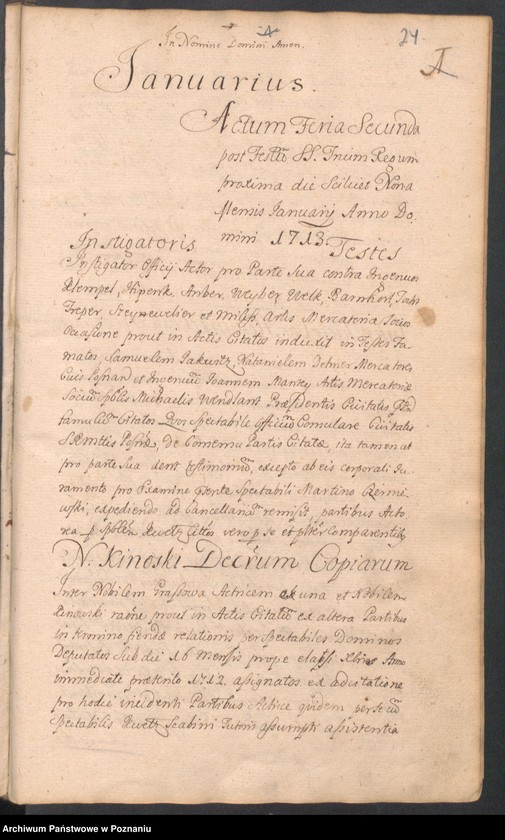 24
In Nomine Domini Amen.
A
Januarius.
Actum Feria Secunda
post Festũ SS. Trium Regum
proxima die Scilicet Nona
Mensis Januarij Anno Do-
mini 1713.
Instigatoris Testes
Instigator Officij Actor pro Parte Sua contra Ingenuos
Klempel, Anber, Weyher Welk, Barnhort, Joh
Treper, et Artis Mercatoria Socios
Occasione prout in Actis Citatos induxit in Testes Fa-
matos, Samuelem Jakuntz, Natanielem Detner Mercatores
Cives Posnan et Ingenuũ Joannem Mantey Artis Mercatoriæ
Sociũ Spblis Michaelis Wendlant Præsidentis Civitatis
famulũ Citatos Quos Spectabile Officiũ Consulare Civitatis
Posnæ, de Consensu Partis Citatæ, ita tamen ut
pro parte sua dent testimoniũ, excepto ab eis corporali Ju-
ramento pro Examine coram Spectabili Martino
expediendo ad Cancellariã remisit, partibus Acto-
rea p Spblem Kwetz Citatis vero p se et pliter Comparentib
N. Kinoski Decrum Copiarum
Inter Nobilem Grassowa Actricem ex una et Nobilem
Kinowski raõne prout in Actis Citatũ ex altera Partibus
in termino fiendæ relationis per Spectabiles Dominos
Deputatos Sub die 16 Mensis prope elapsi Xbris Anno
immediate præterito 1712. assignatos ex ad citatione
pro hodie incidenti Partibus Actrice quidem per se cũ
Spectabilis Kwetz Scabini Tutoris assumpti assistentia
Archiwum Państwowe w Poznaniu